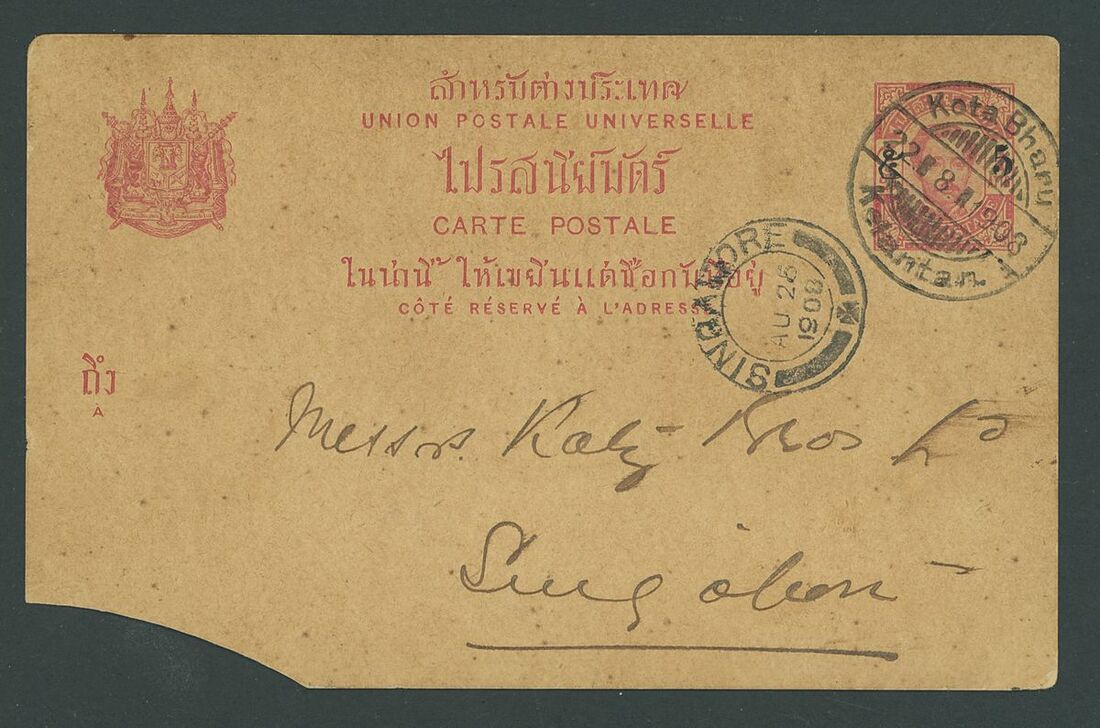 สำหรับต่างประเทศ
UNION POSTALE UNIVERSELLE
ไปรสนียบัตร์
CARTE POSTALE
CÔTÉ RÉSERVÉ À L'ADRESSE
ถึง
À
Kota Bharu
22 8 1908
Kelantan.
SINGAPORE
AU 26
1908
Messrs. Katz Bros Ld
Singapore